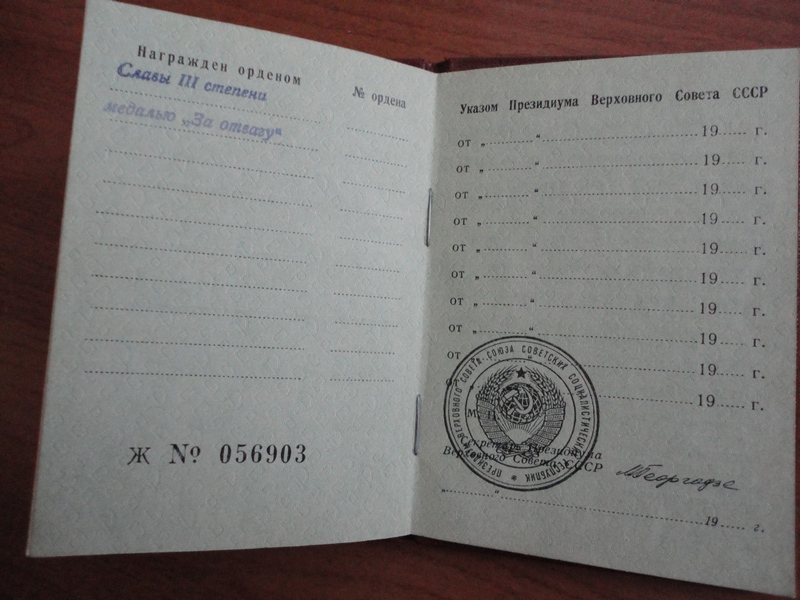 Награжден орденом
№ ордена
Славы III степени
медалью „За отвагу“
Ж № 056903
Указом Президиума Верховного Совета СССР
от „..........“..........19..... г.
от „..........“..........19..... г.
от „..........“..........19..... г.
от „..........“..........19..... г.
от „..........“..........19..... г.
от „..........“..........19..... г.
от „..........“..........19..... г.
от „..........“..........19..... г.
от „..........“..........19..... г.
от „..........“..........19..... г.
М. П.
Секретарь Президиума
Верховного Совета СССР
МГеоргадзе
„..........“..........19..... г.
ПРЕЗИДИУМ ВЕРХОВНОГО СОВЕТА СОЮЗА СОВЕТСКИХ СОЦИАЛИСТИЧЕСКИХ РЕСПУБЛИК